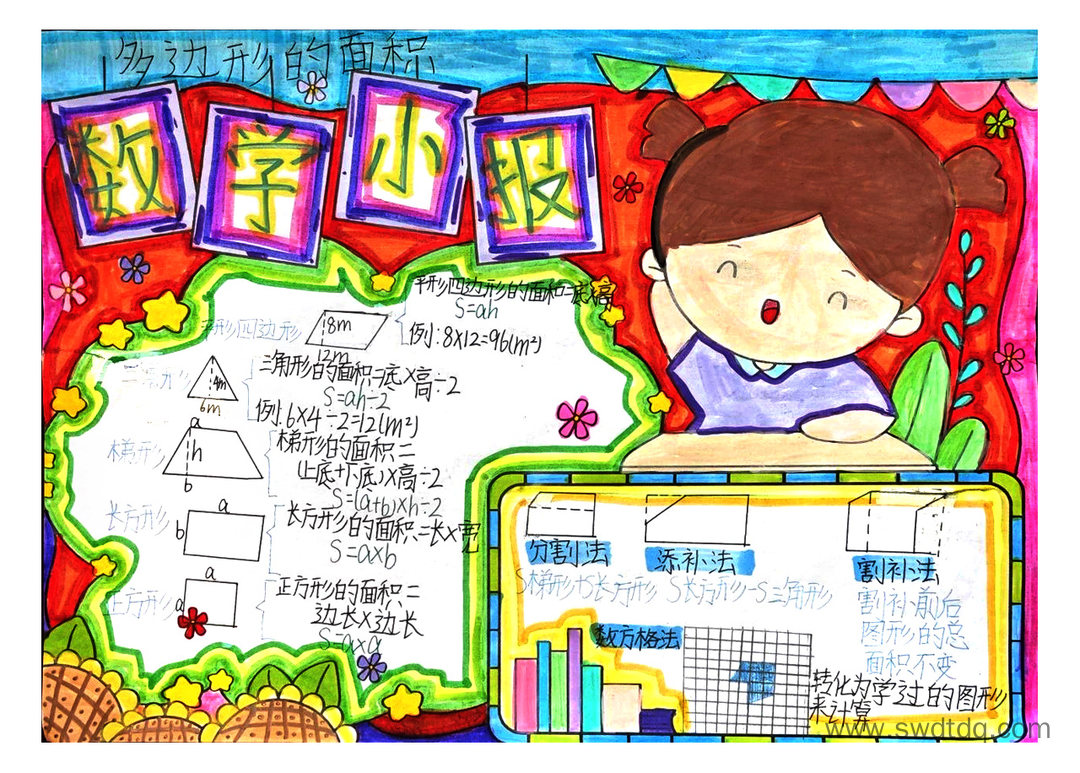 多边形的面积
数学小报
平形四边形的面积=底×高
S=ah
例:8×12=96(m²)
平形四边形
8m
12m
三角形
4m
6m
三角形的面积=底×高÷2
S=ah÷2
例:6×4÷2=12(m²)
梯形
a
h
b
梯形的面积=
(上底+下底)×高÷2
S=(a+b)×h÷2
长方形
a
b
长方形的面积=长×宽
S=a×b
正方形
a
a
正方形的面积=
边长×边长
S=a×a
分割法
S梯形+S长方形
添补法
S长方形-S三角形
割补法
割补前后
图形的总
面积不变
数方格法
转化为学过的图形
来计算
www.swdtdq.com